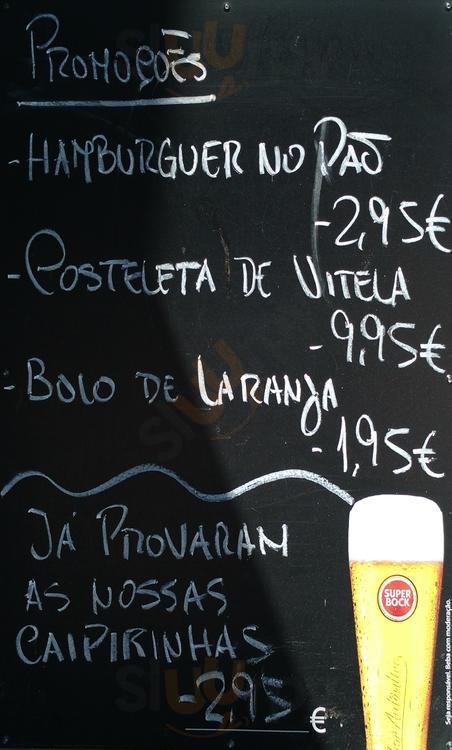 PROMOÇÕES
-HAMBURGUER NO PAÕ
-2,95€
-COSTELETA DE VITELA
-9,95€
-BOLO DE LARANJA
-1,95€
JÁ PROVARAM
AS NOSSAS
CAIPIRINHAS
-2,95
€
SUPER
BOCK
Seja responsável. Beba com moderação.